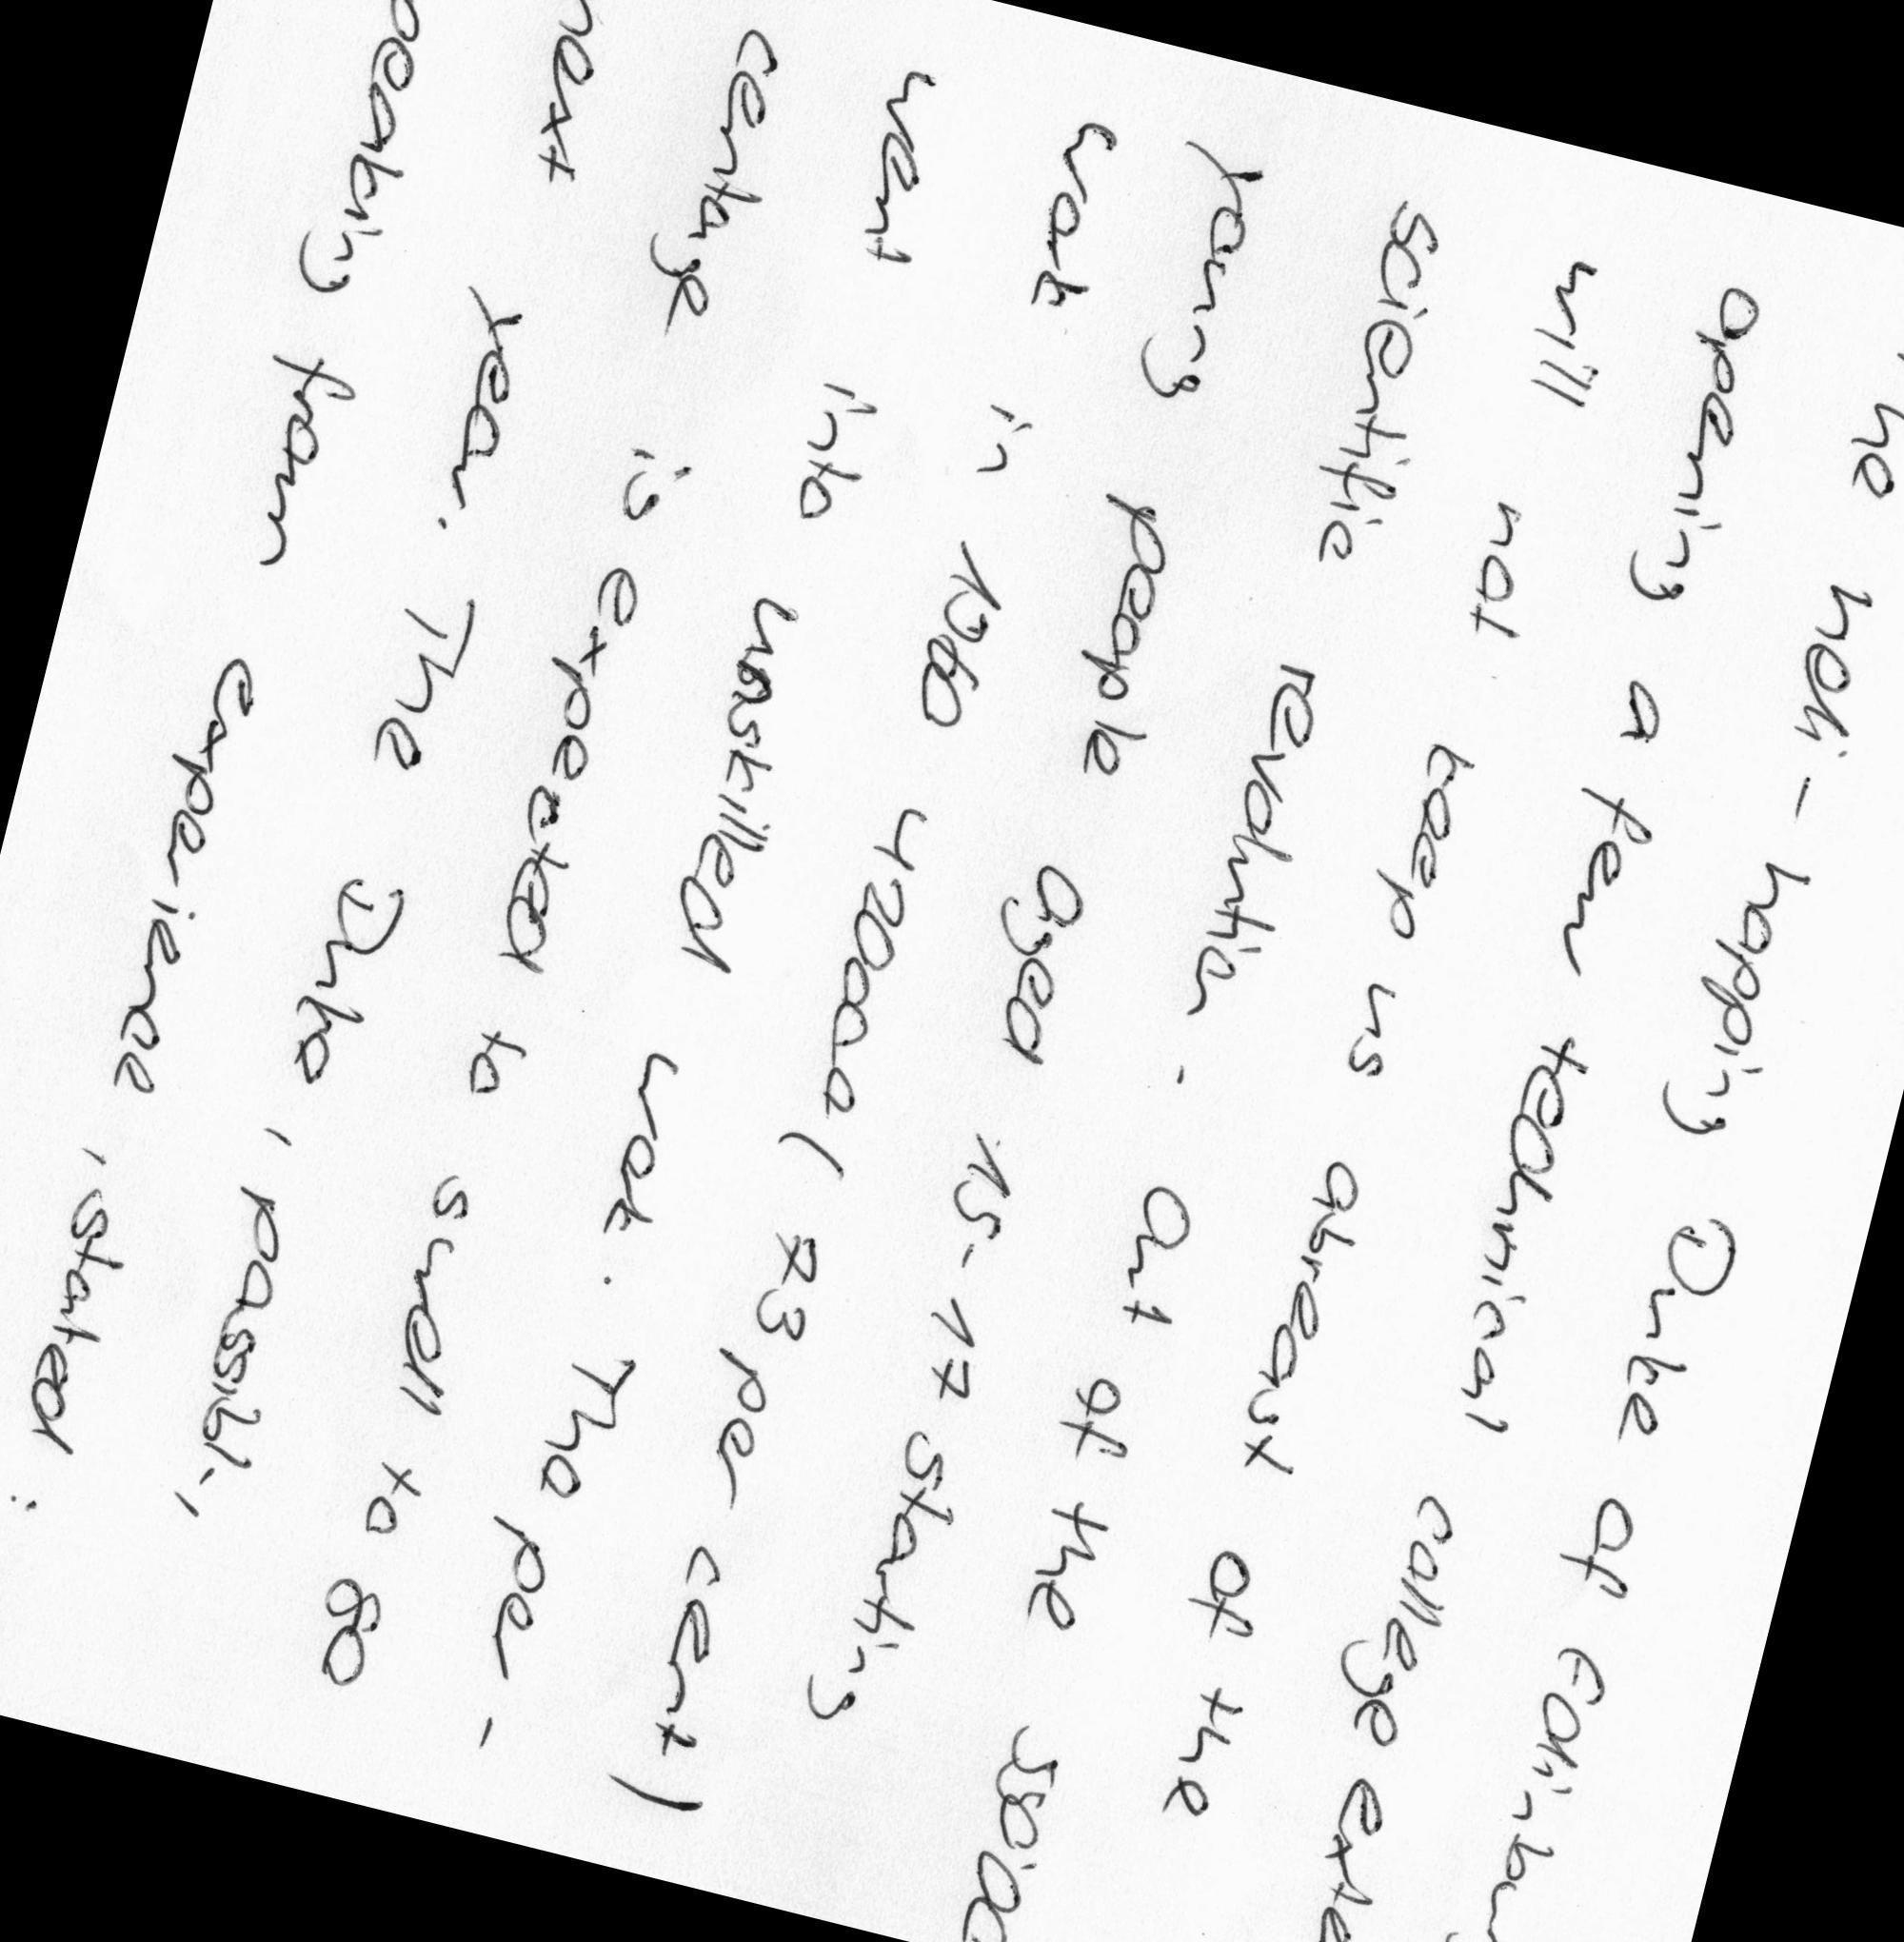 The heli-hopping Duke of Edinbu
opening a few technical college exte
will not keep us abreast of the
scientific revolution. Out of the 5800
young people aged 15-17 starting
work in 1960 42000 (73 per cent)
went into unskilled work. The per-
centage is expected to swell to 80
next year. The Duke, possibly,
peaking from experience, stated: